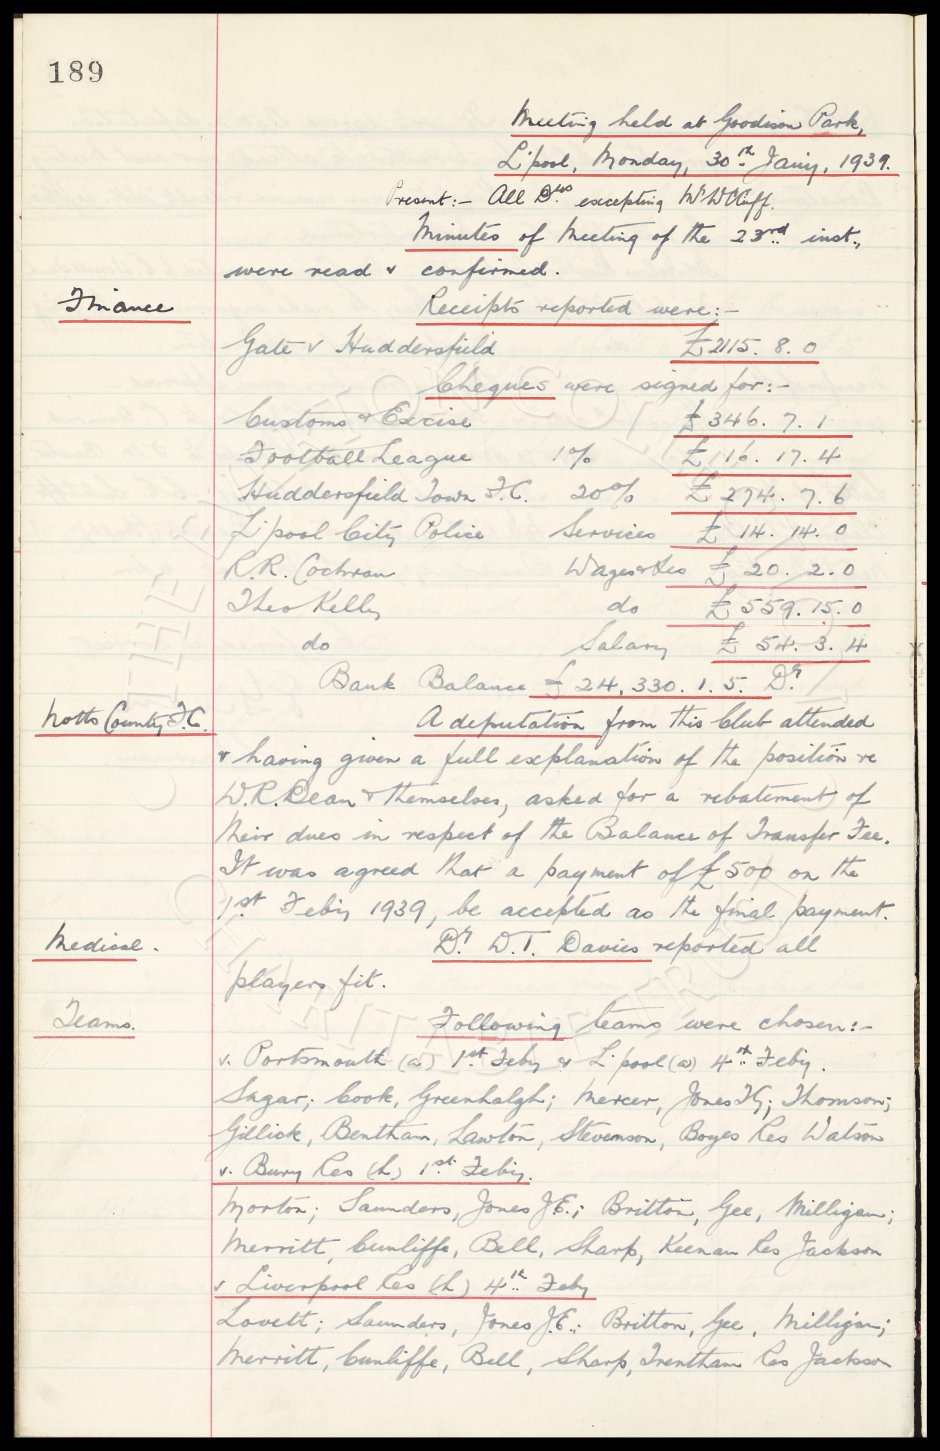 189
Meeting held at Goodison Park,
L'pool, Monday, 30th Jan'y, 1939.
Present:- All Drs excepting Mr W C Cuff.
Minutes of Meeting of the 23rd inst.,
were read & confirmed.
Finance
Receipts reported were:-
Gate v Huddersfield £2115. 8. 0
Cheques were signed for:-
Customs & Excise £346. 7. 1
Football League 1% £ 16. 17. 4
Huddersfield Town F.C. 20% £ 274. 7. 6
L'pool City Police Services £ 14. 14. 0
R.R. Cochran Wages &c £ 20. 2. 0
Theo Kelly do £559. 15. 0
do Salary £ 54. 3. 4
Bank Balance £ 24,330. 1. 5. Dr
Notts County F.C.
A deputation from this Club attended
& having given a full explanation of the position re
W.R. Dean & themselves, asked for a rebatement of
their dues in respect of the Balance of Transfer Fee.
It was agreed that a payment of £500 on the
1st Feb'y 1939, be accepted as the final payment.
Medical.
Dr. W.T. Davies reported all
players fit.
Teams.
Following teams were chosen:-
v. Portsmouth (a) 1st Feb'y & L'pool (a) 4th Feb'y.
Sagar; Cook, Greenhalgh; Mercer, Jones T.G; Thomson;
Gillick, Bentham, Lawton, Stevenson, Boyes Res Watson
v. Bury Res (h) 1st Feb'y.
Morton; Saunders, Jones J.E.; Britton, Gee, Milligan;
Merritt, Cunliffe, Bell, Sharp, Keenan Res Jackson
v Liverpool Res (h) 4th Feb'y
Lovett; Saunders, Jones J.E.; Britton, Gee, Milligan;
Merritt, Cunliffe, Bell, Sharp, Trentham Res Jackson